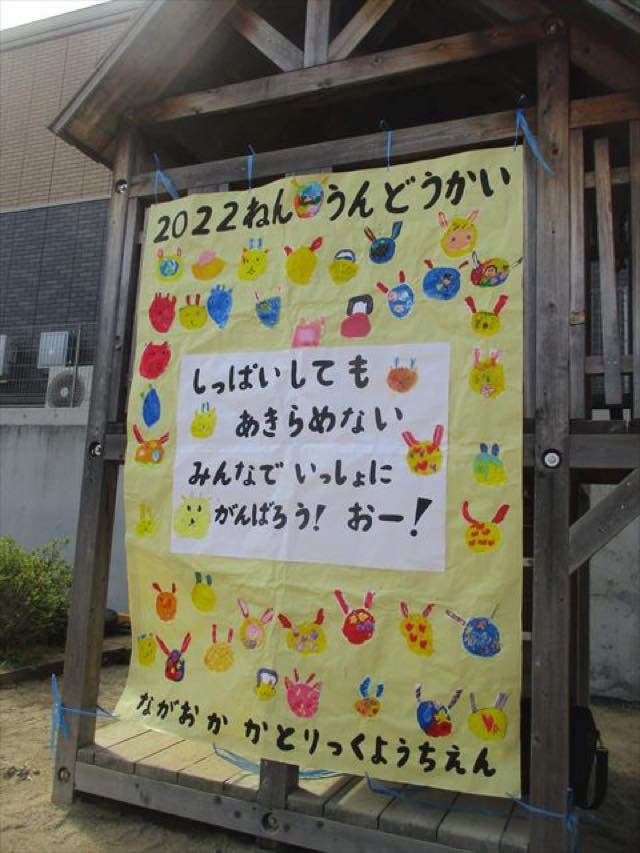 2022ねん うんどうかい
しっぱいしても
あきらめない
みんなで いっしょに
がんばろう! おー!
ながおか かとりっくようちえん